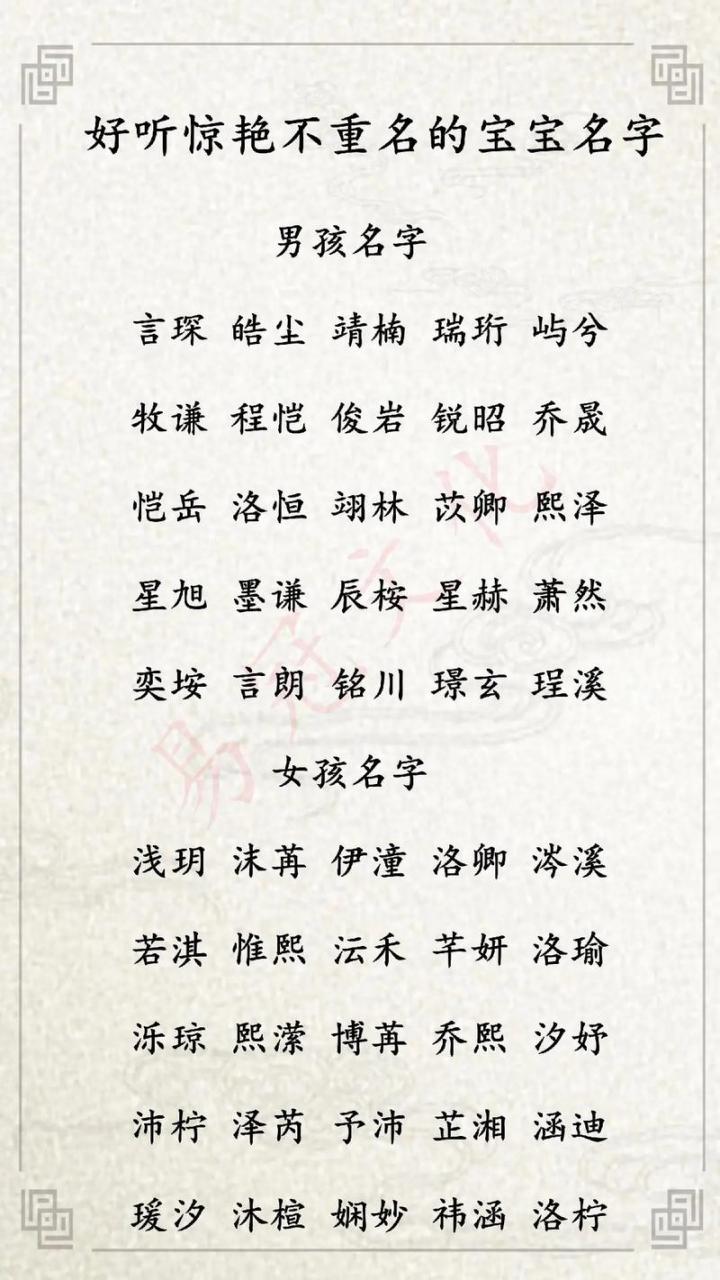 好听惊艳不重名的宝宝名字
男孩名字
言琛 皓尘 靖楠 瑞珩 屿兮
牧谦 程恺 俊岩 锐昭 乔晟
恺岳 洛恒 翊林 苡卿 熙泽
星旭 墨谦 辰桉 星赫 萧然
奕垵 言朗 铭川 璟玄 珵溪
女孩名字
浅玥 沫苒 伊潼 洛卿 涔溪
若淇 惟熙 沄禾 芊妍 洛瑜
泺琼 熙潆 博苒 乔熙 汐妤
沛柠 泽芮 予沛 芷湘 涵迪
瑗汐 沐楦 娴妙 祎涵 洛柠
易冠文化